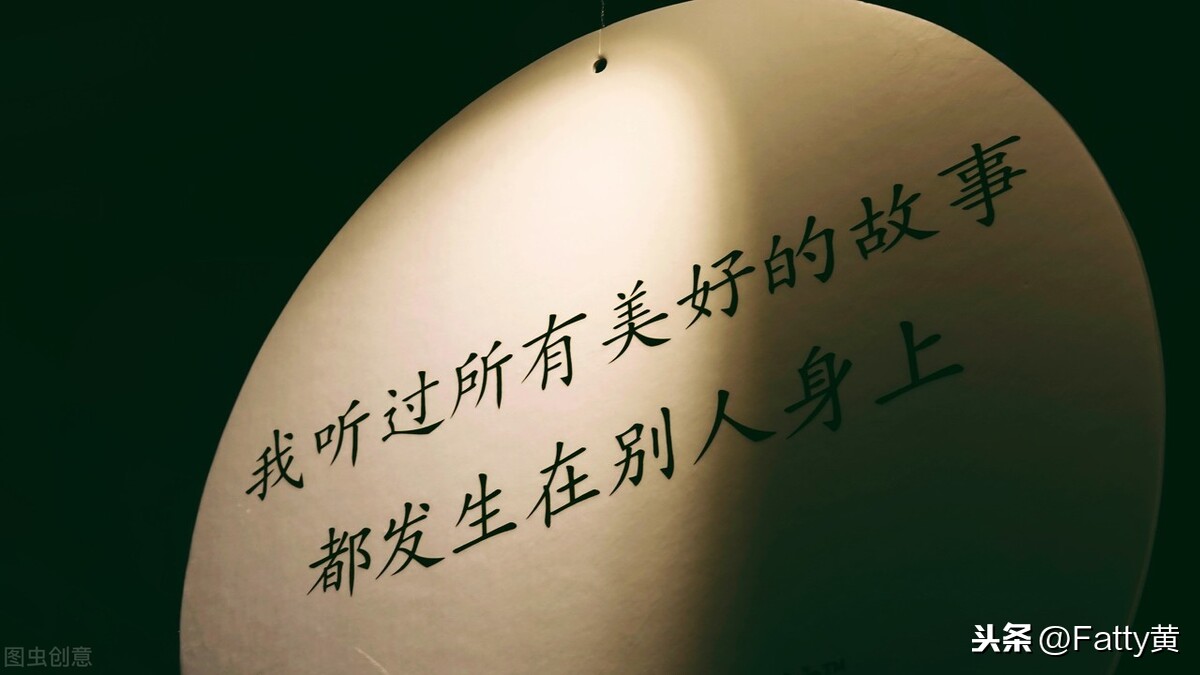 我听过所有美好的故事
都发生在别人身上
图虫创意
头条 @Fatty黄